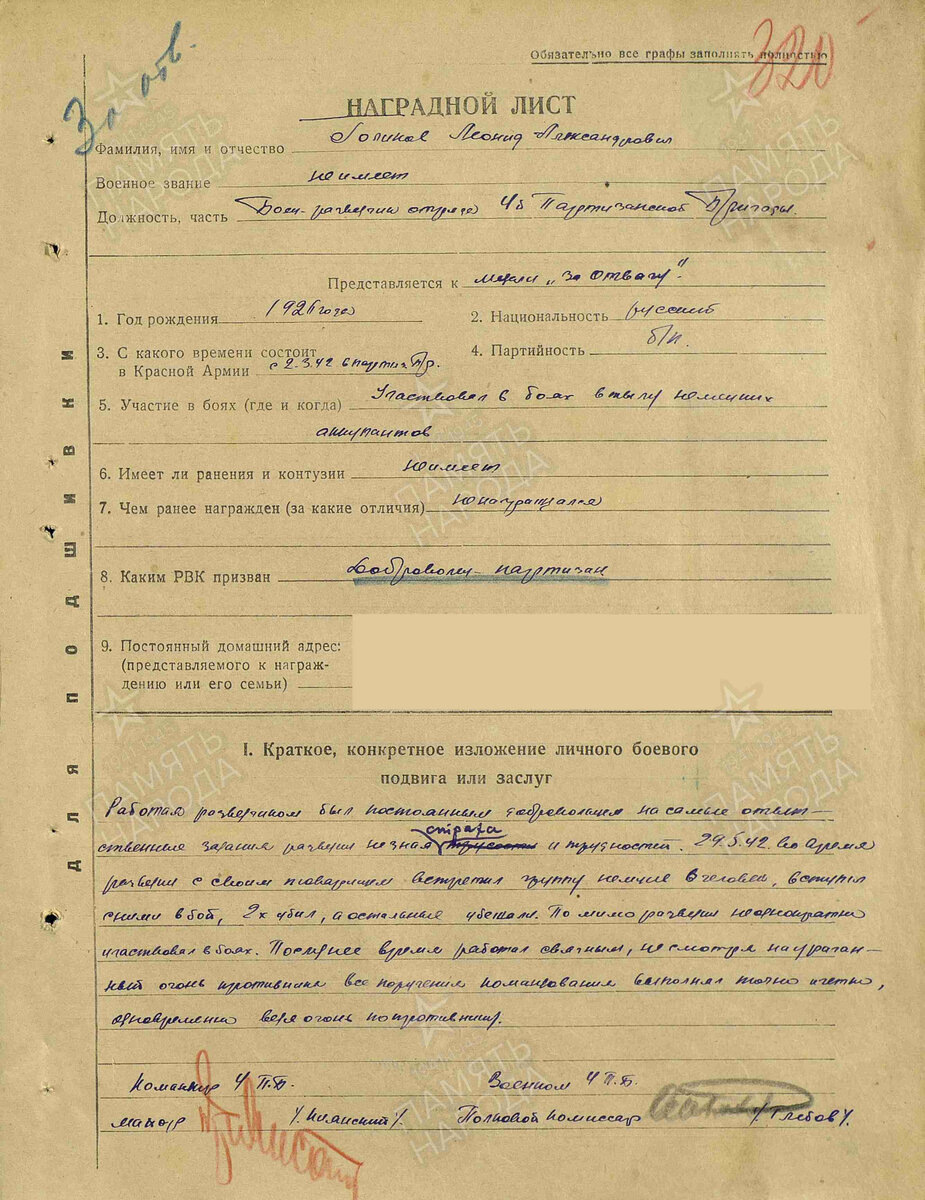 За отв.
320
Обязательно все графы заполнять полностью
НАГРАДНОЙ ЛИСТ
Фамилия, имя и отчество Голиков Леонид Александрович
Военное звание не имеет
Должность, часть Боец-разведчик отряда 4й Партизанской Бригады.
Представляется к медали „За Отвагу".
1. Год рождения 1926 года
2. Национальность русский
3. С какого времени состоит
в Красной Армии с 2.3.42 в партиз. бр.
4. Партийность б/п.
5. Участие в боях (где и когда) Участвовал в боях в тылу немецких
аккупантов
6. Имеет ли ранения и контузии не имеет
7. Чем ранее награжден (за какие отличия) не награждался
8. Каким РВК призван Доброволец-партизан
9. Постоянный домашний адрес:
(представляемого к награж-
дению или его семьи)
для подшивки
I. Краткое, конкретное изложение личного боевого
подвига или заслуг
Работая разведчиком был постоянным добровольцем на самые ответ-
ственные задания разведки не зная страха и трудностей. 29.5.42. во время
разведки с своим товарищем встретил группу немцев 6 человек, вступил
с ними в бой, 2х убил, а остальные убежали. Помимо разведки неоднократно
участвовал в боях. Последнее время работал связным, не смотря на ураган-
ный огонь противника все поручения командования выполнял точно и четко,
одновременно ведя огонь по противнику.
Командир 4 П.Б. Военком 4 П.Б.
майор Полковой комиссар /Глебов/.
ПАМЯТЬ
НАРОДА